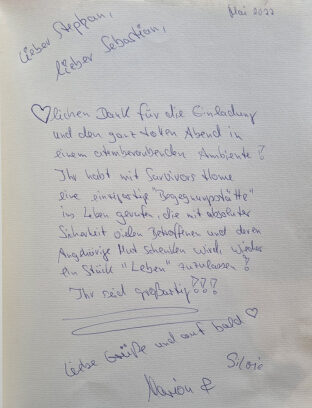 Mai 2022
Lieber Stephan,
lieber Sebastian,
♡lichen Dank für die Einladung
und den ganz tollen Abend in
einem atemberaubenden Ambiente!
Ihr habt mit Survivors Home
eine einzigartige "Begegnungsstätte"
ins Leben gerufen, die mit absoluter
Sicherheit vielen Betroffenen und deren
Angehörige Mut schenken wird, wieder
ein Stück "Leben" zuzulassen!
Ihr seid großartig!!!
Liebe Grüße und auf bald ♡
Silvie
Marion &